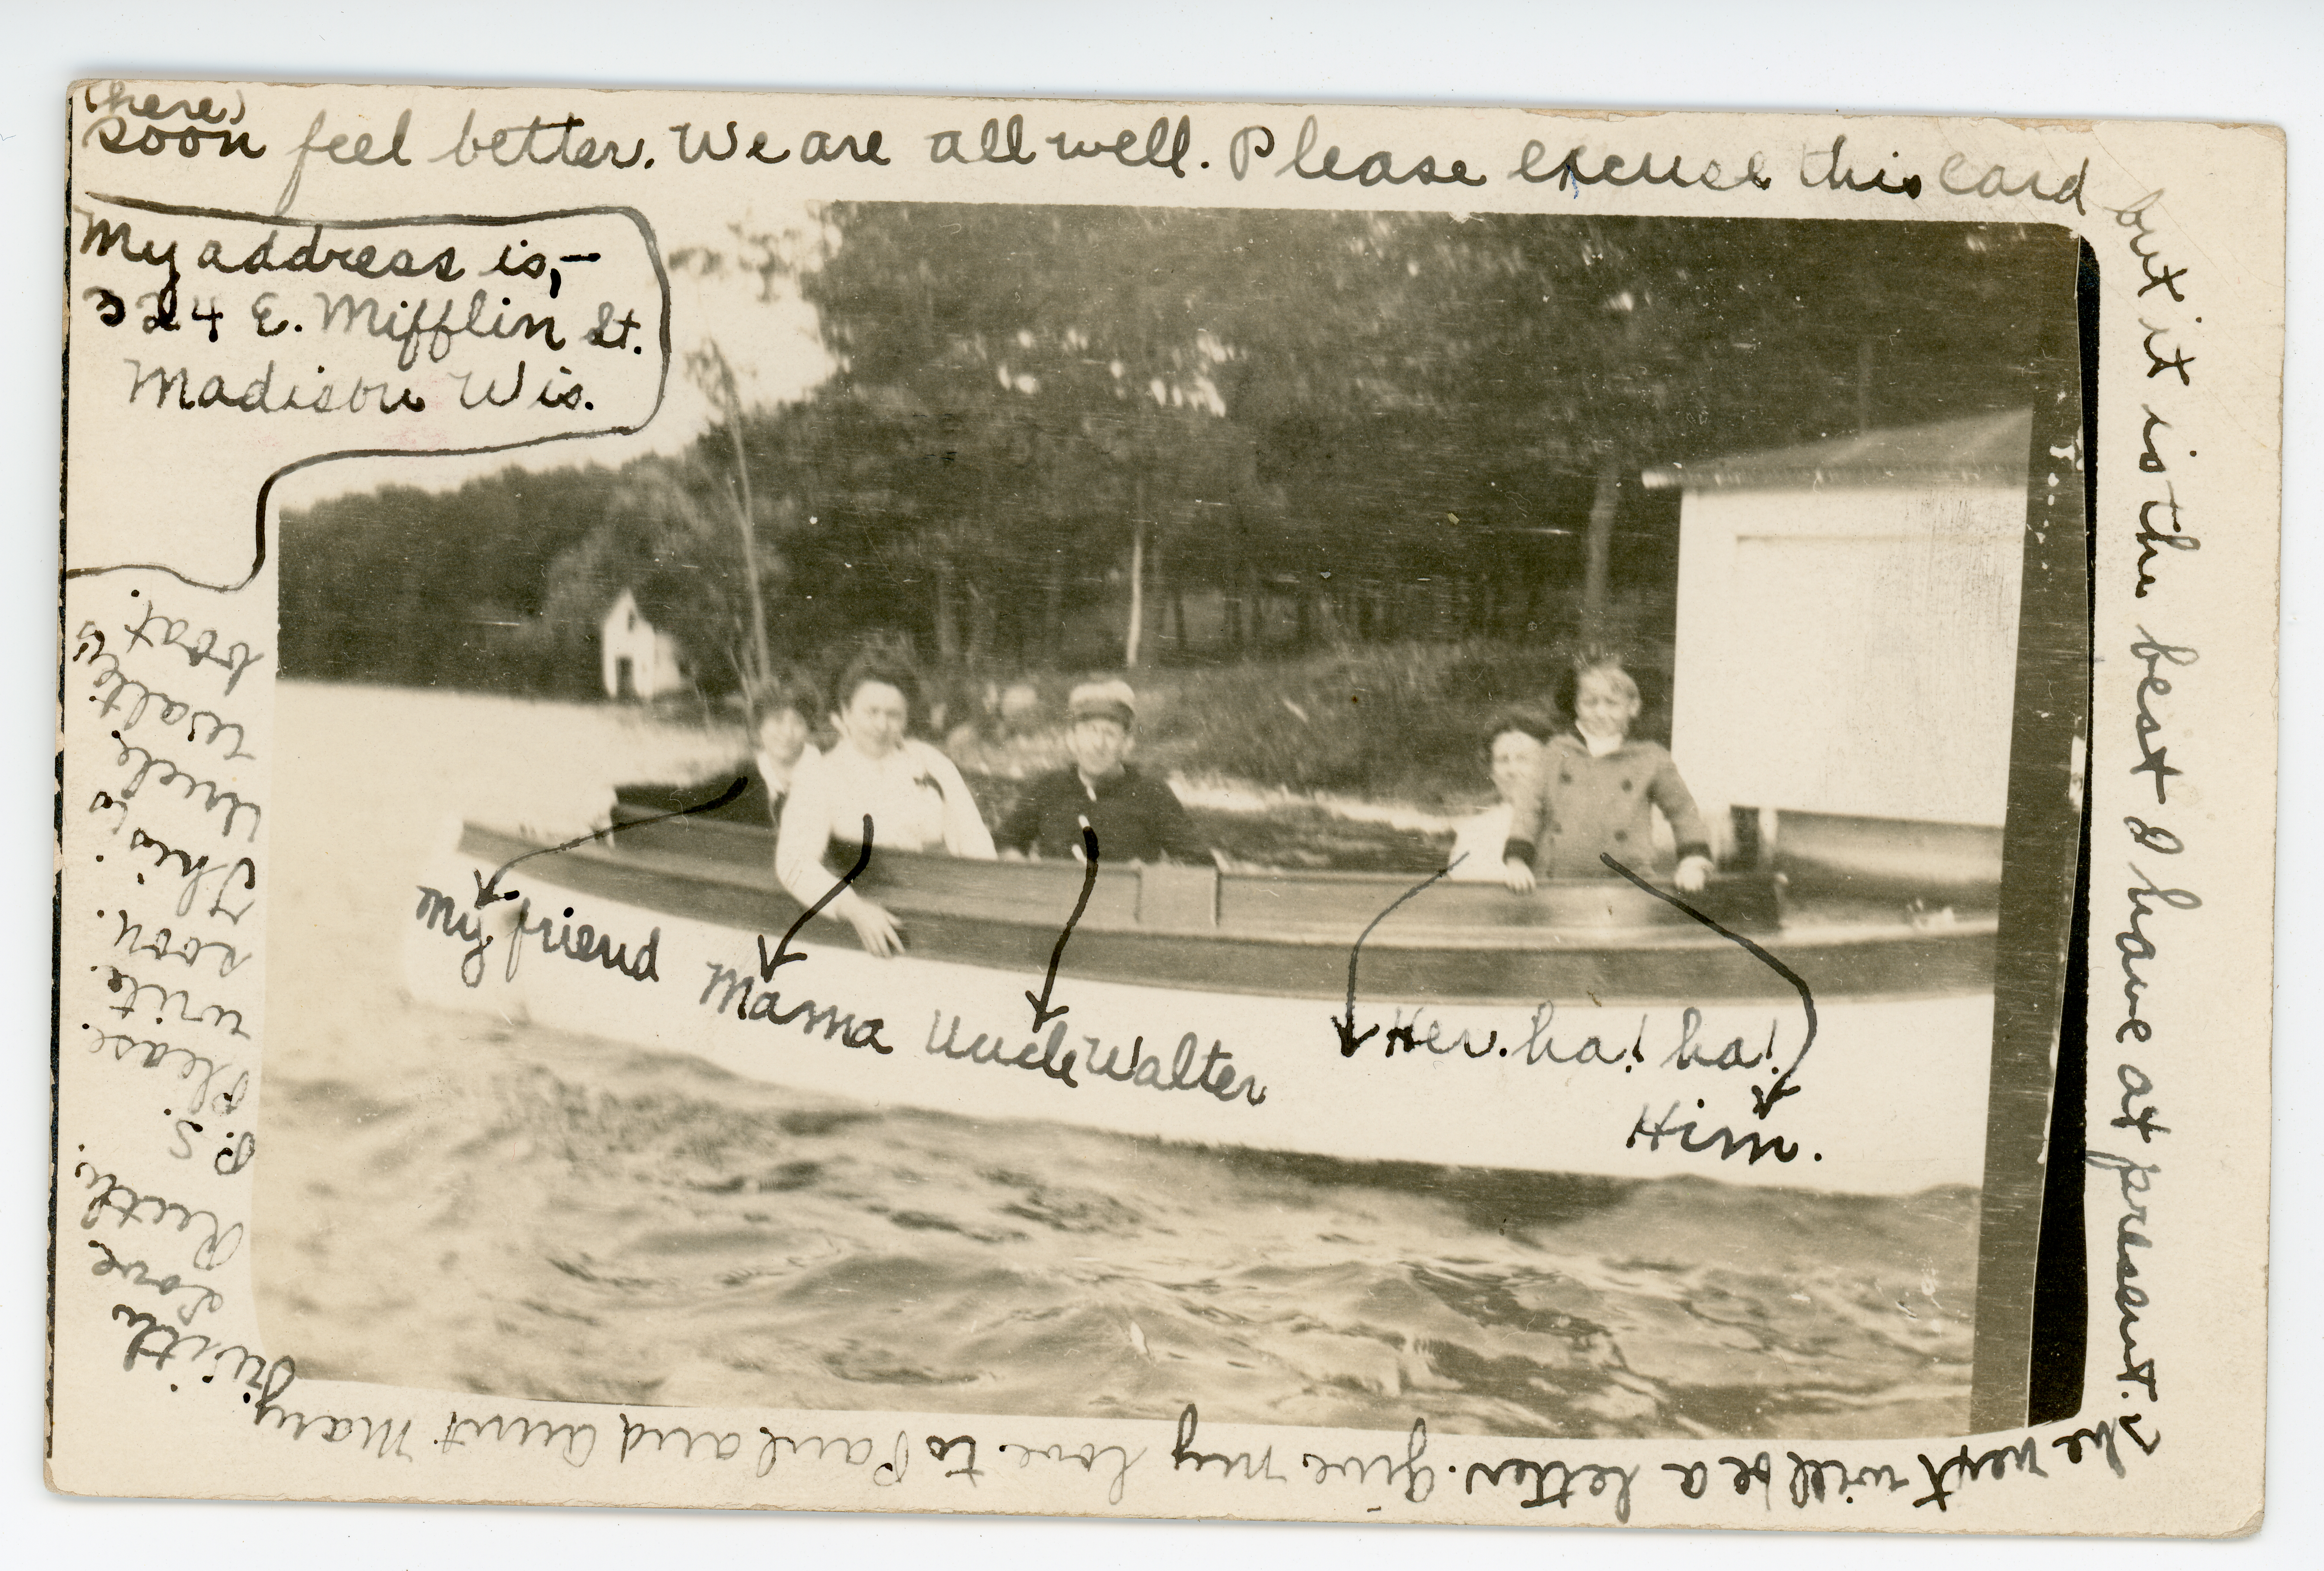 (here)
soon feel better. We are all well. Please excuse this card
but it is the best I have at present.
The next will be a letter. Give my love to Paul and Aunt Mary.
With
Love
Ruth.
P.S.
Please
write
soon.
This is
Uncle
Walter's
boat.
My address is,-
324 E. Mifflin St.
Madison Wis.
My friend
Mama
Uncle Walter
Her. ha! ha!
Him.